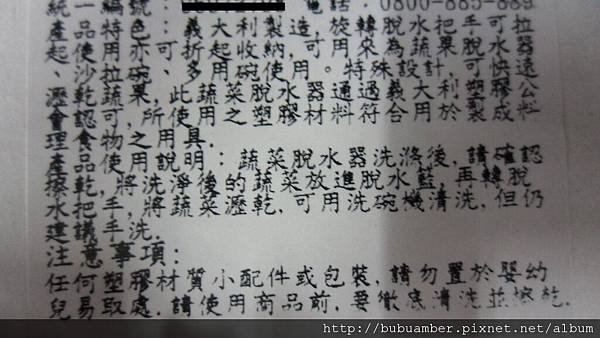 統一編號: 電話:0800-885-889
產品特色:義大利製造,旋轉脫水把手可拉
起、使用亦可折起收納,可用來為蔬果脫水器
、沙拉碗、多用碗使用。特殊設計,可快速
瀝乾蔬果,此蔬菜脫水器通過義大利塑膠公
會認可,所使用之塑膠材料符合用於製成料
理食物之用具.
產品使用說明:蔬菜脫水器洗滌後,請確認
擦乾,將洗淨後的蔬菜放進脫水籃,再轉脫
水把手,將蔬菜瀝乾,可用洗碗機清洗,但仍
建議手洗.
注意事項:
任何塑膠材質小配件或包裝,請勿置於嬰幼
兒易取處.請使用商品前,要徹底清洗並擦乾.
http://bubuamber.pixnet.net/album